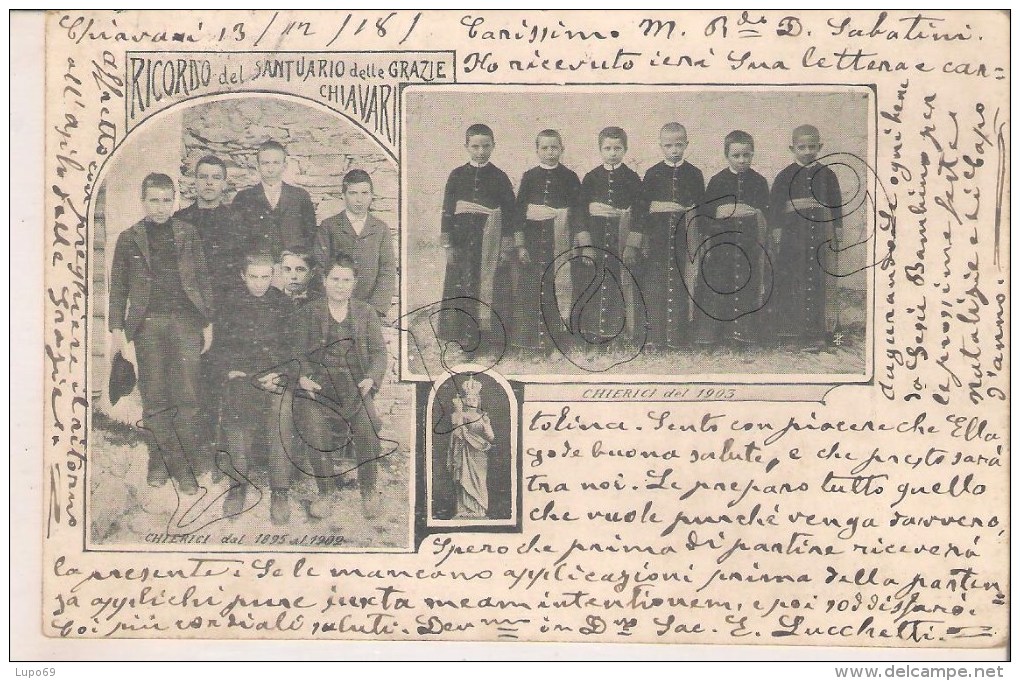 Chiavari 13/12/18/
Carissimo M. Rdo D. Sabatini.
Ho ricevuto ieri Sua lettera e car=
tolina. Sento con piacere che Ella
gode buona salute, e che presto sarà
tra noi. Le preparo tutto quello
che vuole purché venga davvero,
Spero che prima di partire riceverà
la presente. Se le mancano applicazioni prima della parten=
za applichi pure juxta meam intentionem, e poi soddisfarò.
Coi più cordiali saluti. Devmo in Dno Sac. E. Lucchetti.
augurando Le ogni bene
da Gesù Bambino per
le prossime feste
natalizie e il capo
d'anno.
Affretti con preghiere il ritorno
all'asilo delle Grazie
RICORDO del SANTUARIO delle GRAZIE
CHIAVARI
CHIERICI del 1903
CHIERICI dal 1895 al 1902
Lupo69
Lupo69